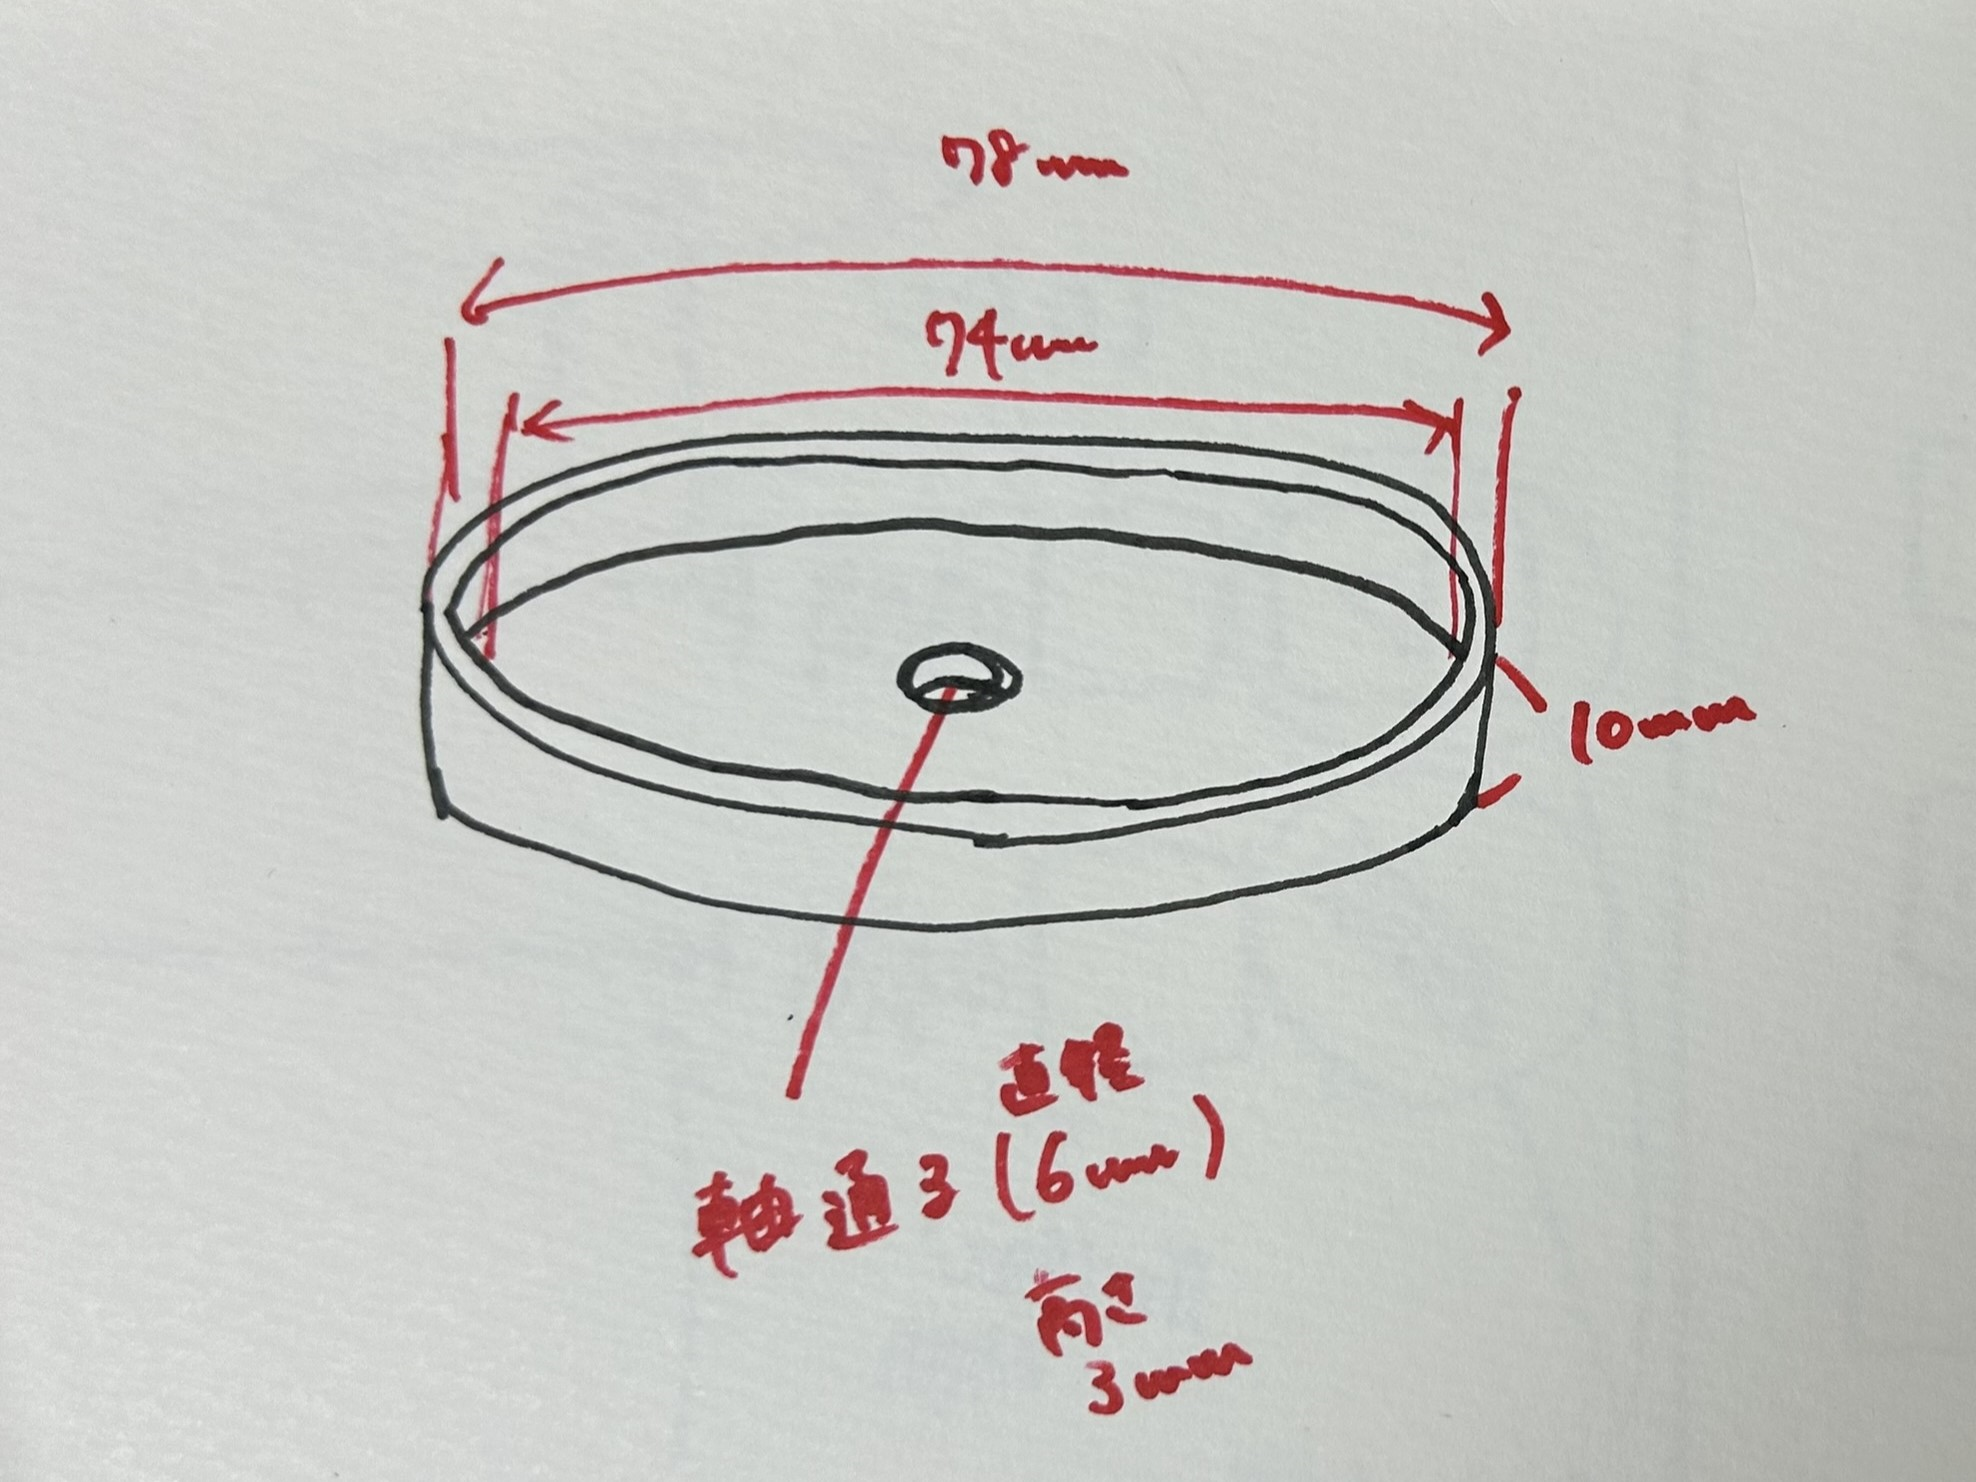 78mm
74mm
10mm
直径
軸通る(6mm)
高さ
3mm